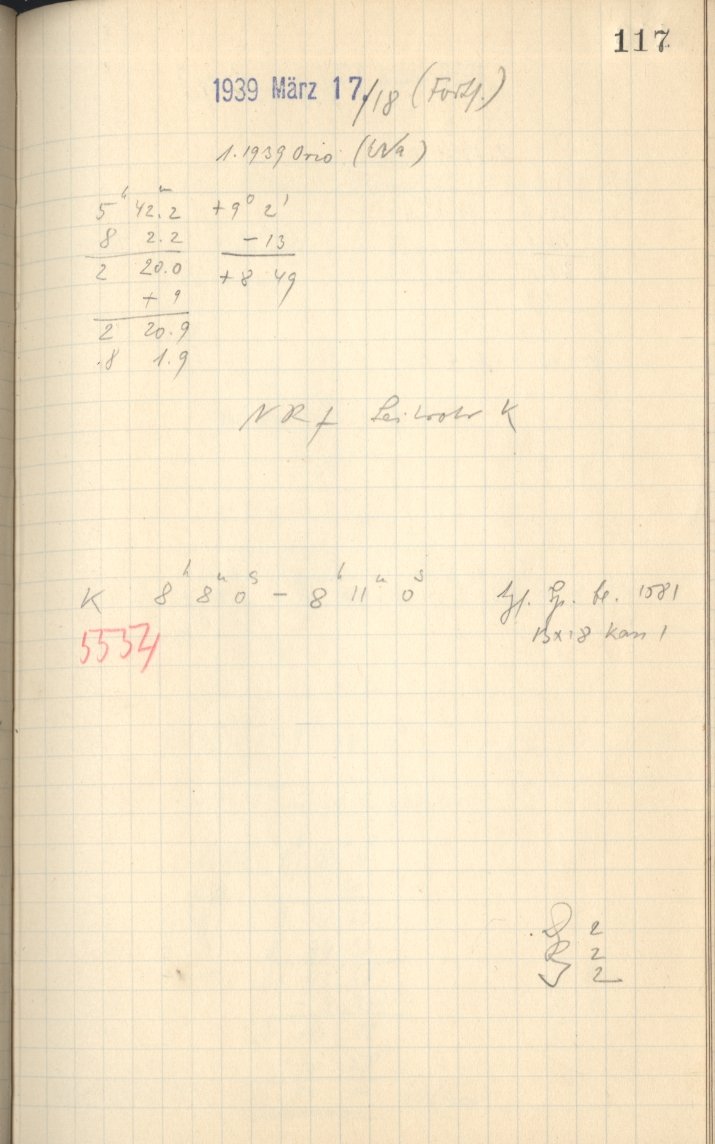 117
1939 März 17./18 (Forts.)
1.1939 Orio (UNa)
5ʰ 42ᵐ.2 +9° 2'
8 2.2 -13
2 20.0 +8 49
+ 9
2 20.9
.8 1.9
NRf Leitrohr K
K 8ʰ 8ᵐ 0ˢ - 8ʰ 11ᵐ 0ˢ 1581
5534 13x18
2
2
2